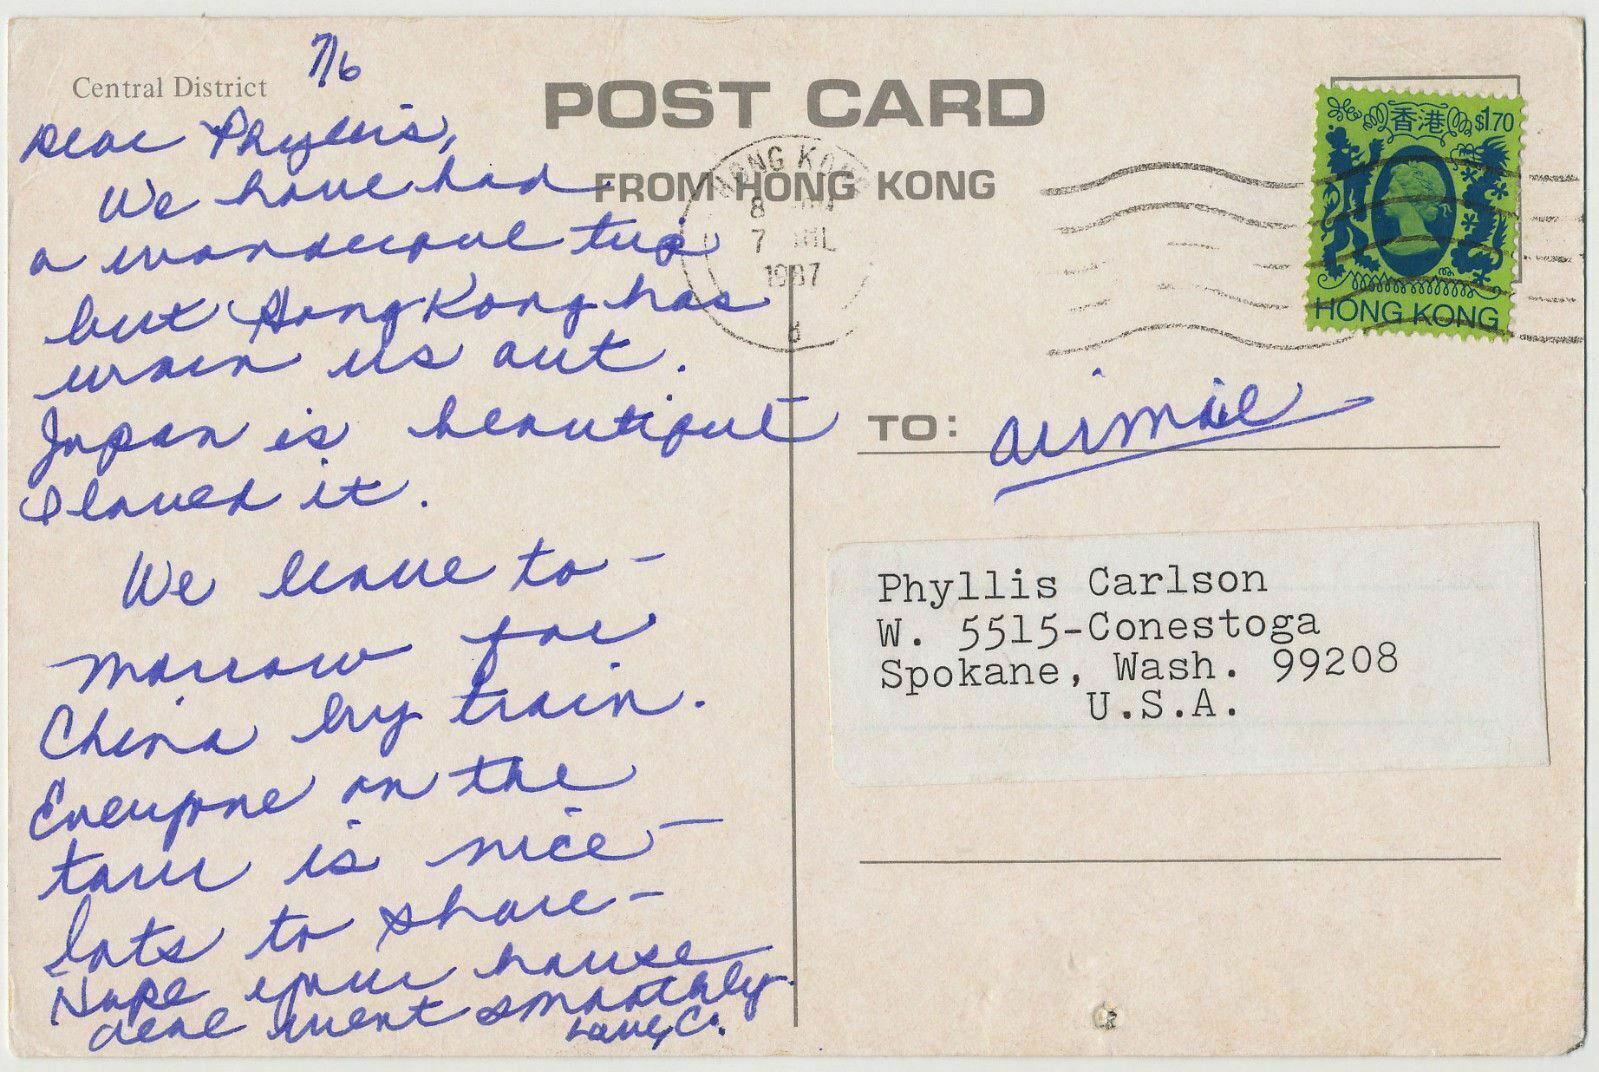 Central District
7/6
POST CARD
FROM HONG KONG
Dear Phyllis,
We have had
a wonderful trip
but Hong Kong has
worn us out.
Japan is beautiful
I loved it.
We leave to-
morrow for
China by train.
Everyone on the
tour is nice -
lots to share -
Hope your house
deal went smoothly.
Love, C.
HONG KONG
8
7 JUL
1987
d
香港 $1.70
HONG KONG
TO: airmail
Phyllis Carlson
W. 5515-Conestoga
Spokane, Wash. 99208
U.S.A.